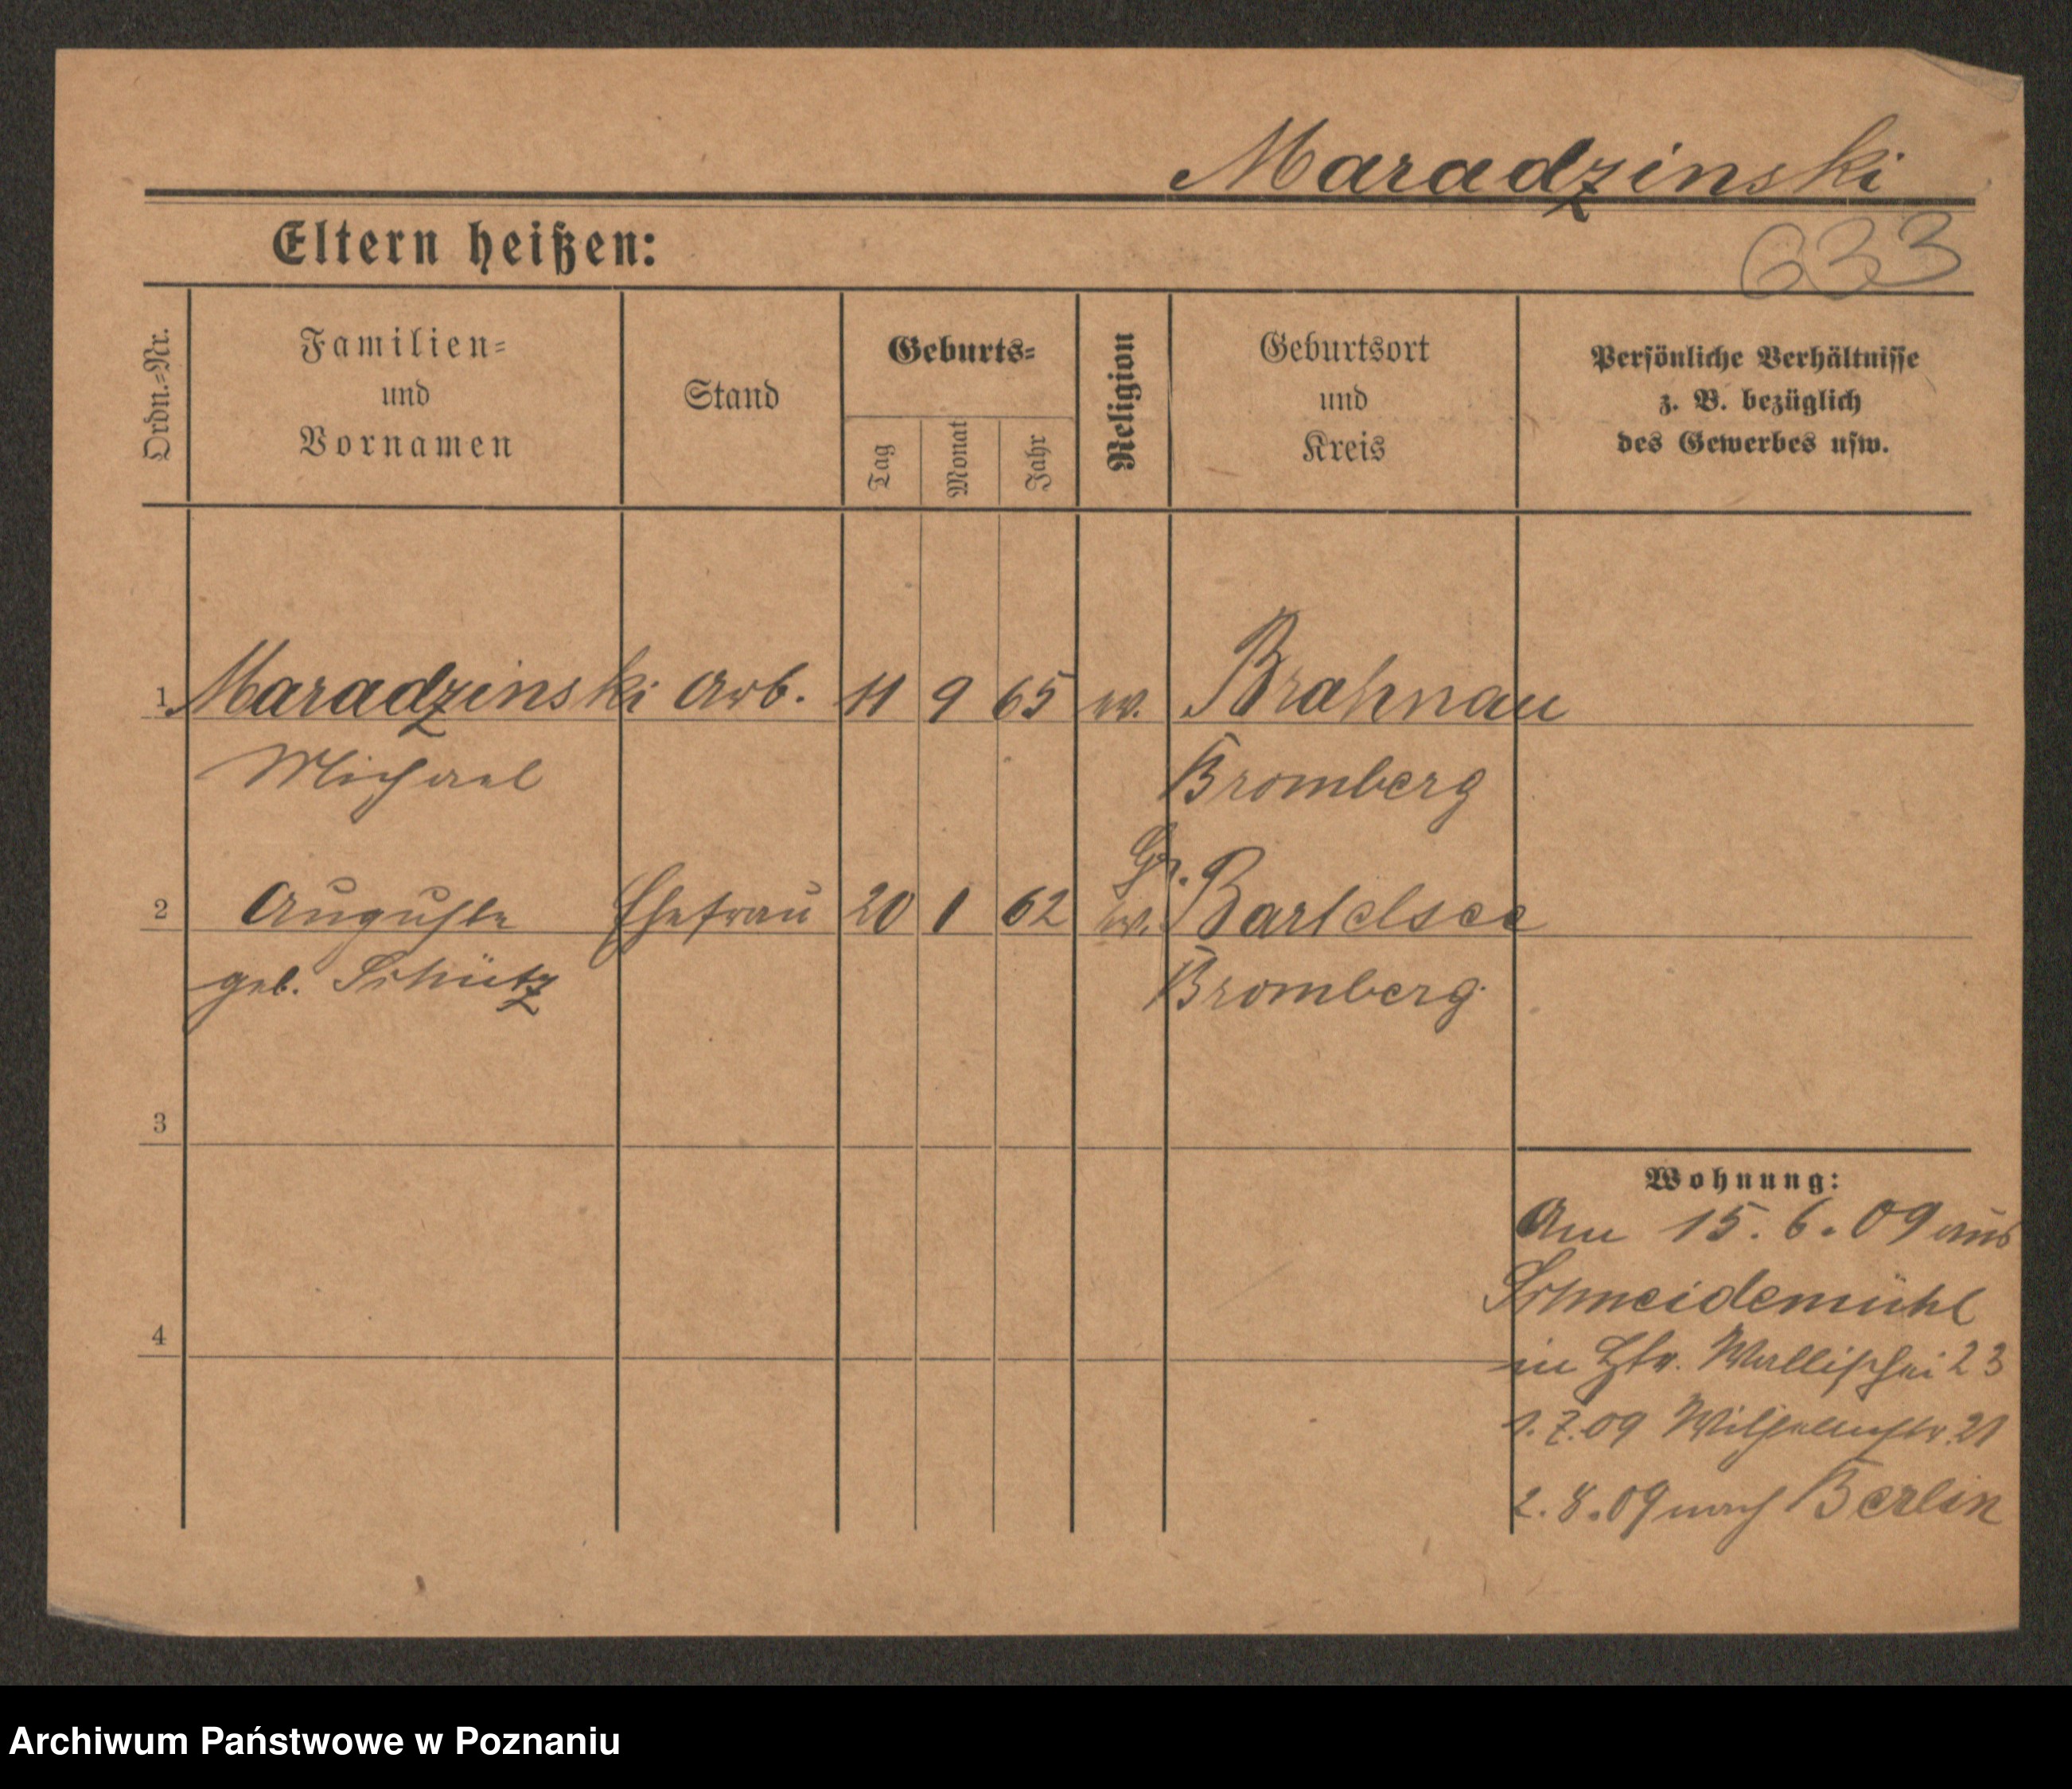 Maradzinski
Eltern heißen:
633
Ordn.-Nr.
Familien-
und
Vornamen
Stand
Geburts-
Tag
Monat
Jahr
Religion
Geburtsort
und
Kreis
Persönliche Verhältnisse
z. B. bezüglich
des Gewerbes usw.
1 Maradzinski Arb. 11 9 65 ev. Brahnau
Michael Bromberg
2 Auguste Ehefrau 20 1 62 ev. Gr. Bartelsee
geb. Schütz Bromberg.
3
4
Wohnung:
Am 15.6.09 aus
Schneidemühl
in Wallischei 23
1.7.09 Wilhelmstr. 21
2.8.09 nach Berlin
Archiwum Państwowe w Poznaniu